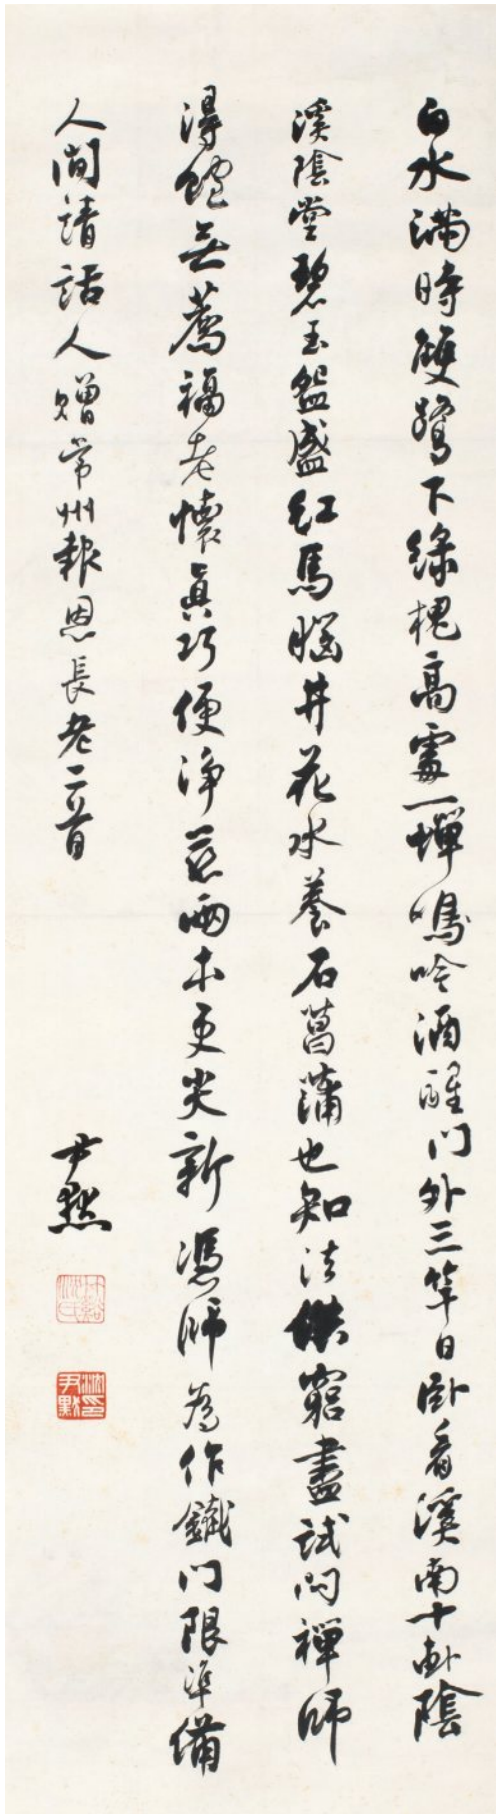 白水滿時雙鷺下綠槐高處一蟬鳴吟酒醒門外三竿日臥看溪南十畝陰
溪陰堂碧玉盌盛紅馬腦井花水養石菖蒲也知法供窮盡試問禪師
得飽無薦福老懷真巧便淨慈兩本更尖新憑師為作鐵門限準備
人間請話人贈常州報恩長老二首
尹默
竹谿沈氏
沈尹默印